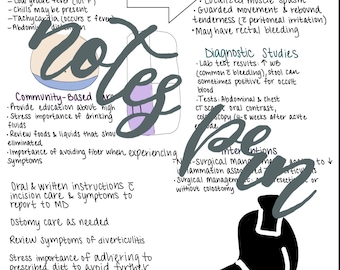 - Low grade fever (101°F)
- Chills may be present
- Tachycardia (occurs c̄ fever)
- Abdominal
Localized muscle spasm
• Guarded movement & rebound
tenderness (c̄ peritoneal irritation)
• May have rectal bleeding
notes pen
Diagnostic Studies
• Lab test results: ↑ WB
(common bleeding), stool can
sometimes positive for occult
blood
• Tests: Abdominal & chest
CT scan oral contrast,
weeks after acute
Community-Based
• Provide education about high
• Stress importance of drinking
fluids
• Review foods & liquids that should
eliminated,
• Importance of avoiding fiber when experiencing
symptoms
Interventions
-surgical management
inflammation associated
• Surgical management
without colostomy
Oral & written instructions c̄
incision care & symptoms to
report to MD
Ostomy care as needed
Review symptoms of diverticulitis
Stress importance of adhering to
prescribed diet to avoid further